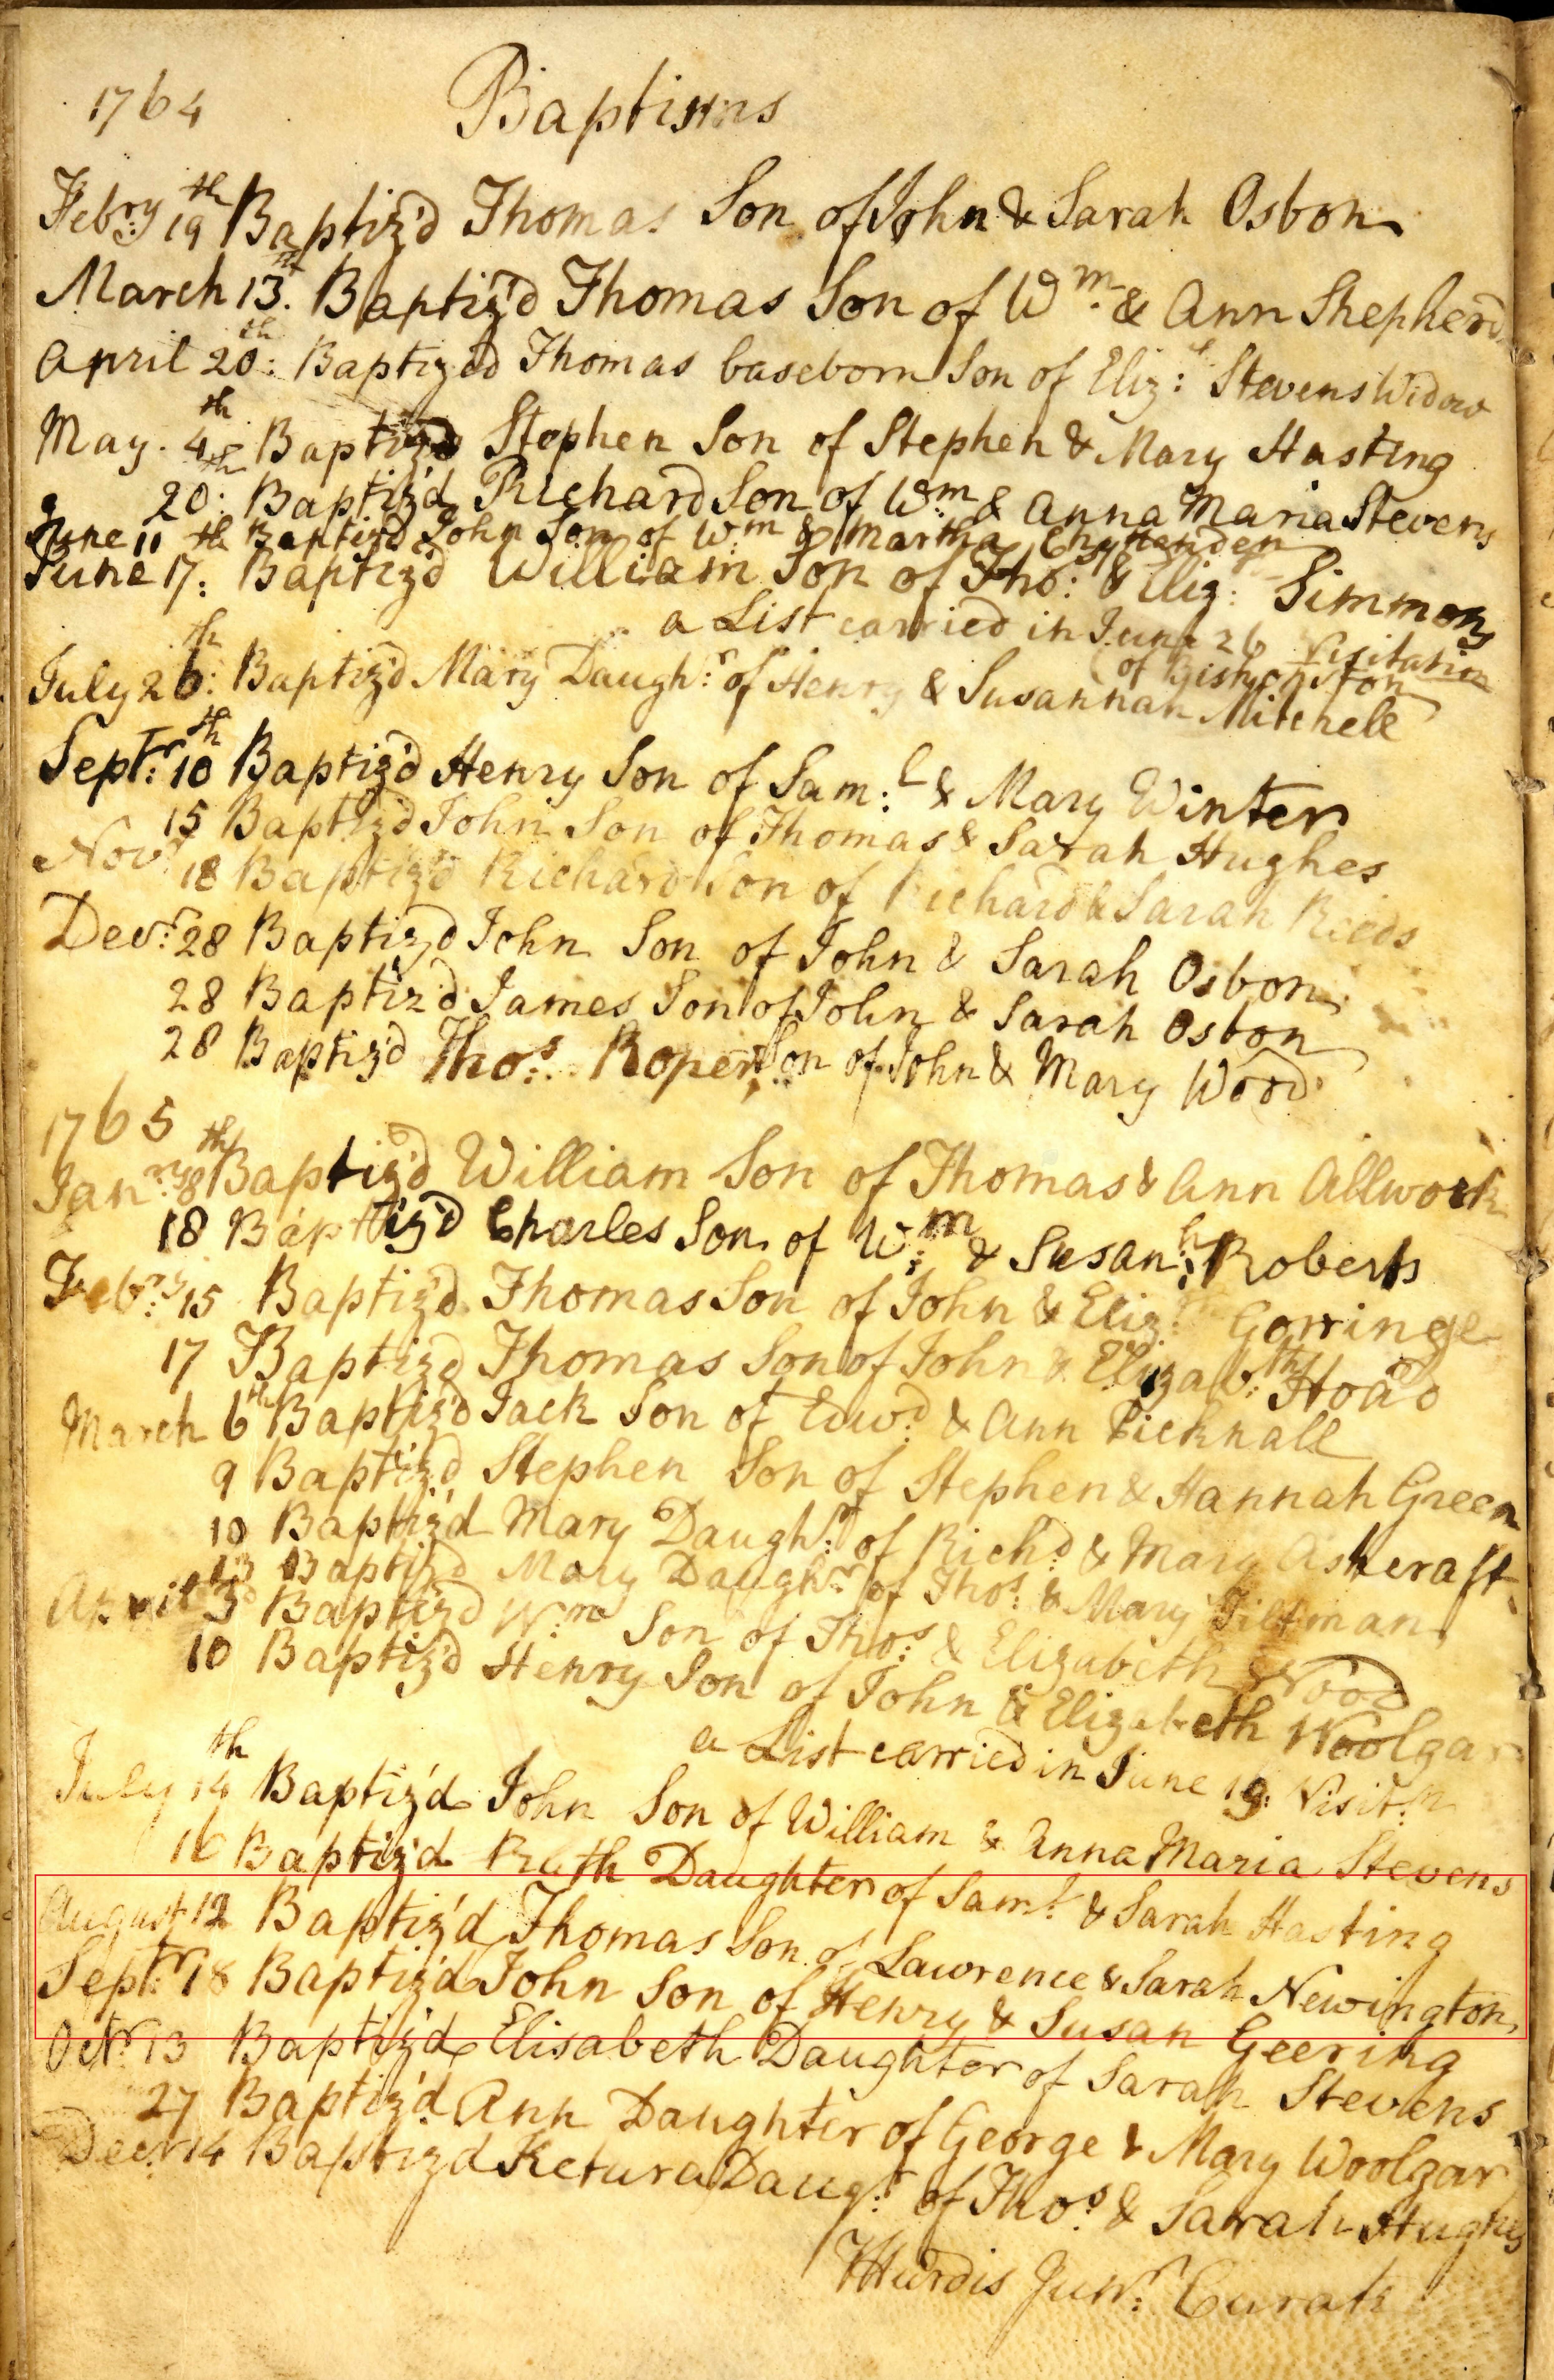 1764 Baptisms
Febry 19th Baptiz'd Thomas Son of John & Sarah Osbon
March 13th. Baptiz'd Thomas Son of Wm & Ann Shepherd
April 20th: Baptizd Thomas baseborn Son of Eliz:th Stevens Widow
May. 4th Baptizd Stephen Son of Stephen & Mary Hasting
20th: Baptiz'd Richard Son of Wm & Anna Maria Stevens
June 11th Baptizd John Son of Wm & Martha Chittenden
June 17: Baptiz'd William Son of Tho: & Eliz: Simmons
a List carried in June 26 Visitation
(of Bishop
July 26th: Baptiz'd Mary Daugh:r of Henry & Susannah Mitchell
Sept:r 10th Baptiz'd Henry Son of Sam:l & Mary Winter
15 Baptiz'd John Son of Thomas & Sarah Hughes
Novr 18 Baptiz'd Richard Son of Richard & Sarah Rieds
Dec:r 28 Baptiz'd John Son of John & Sarah Osbon
28 Baptiz'd James Son of John & Sarah Osbon
28 Baptiz'd Thos. Roper, Son of John & Mary Wood
1765
Jan:ry 8th Baptiz'd William Son of Thomas & Ann Allwork
18 Baptiz'd Charles Son of W:m & Susan:h Roberts
Feb:ry 15 Baptiz'd Thomas Son of John & Eliz:th Gorringe
17 Baptiz'd Thomas Son of John & Elizab:th Hoad
March 6th Baptiz'd Jack Son of Edw:d & Ann Picknall
9 Baptiz'd Stephen Son of Stephen & Hannah Green
10 Baptiz'd Mary Daugh:r of Rich:d & Mary Ashcraft
13 Baptizd Mary Daugh:r of Tho:s & Mary Tiltman
April 3d Baptizd W:m Son of Tho:s & Elizabeth Wood
10 Baptiz'd Henry Son of John & Elizabeth Woolgar
a List carried in June 19: Visit:n
July 14th Baptiz'd John Son of William & Anna Maria Stevens
16 Baptiz'd Ruth Daughter of Sam:l & Sarah Hasting
August 12 Baptiz'd Thomas Son of Lawrence & Sarah Newington
Sept:r 18 Baptiz'd John Son of Henry & Susan Geering
Octr: 13 Baptiz'd Elisabeth Daughter of Sarah Stevens
27 Baptiz'd Ann Daughter of George & Mary Woolgar
Decr: 14 Baptizd Ketura Daug:r of Tho:s & Sarah Hughes
T Hurdis Jun:r Curate